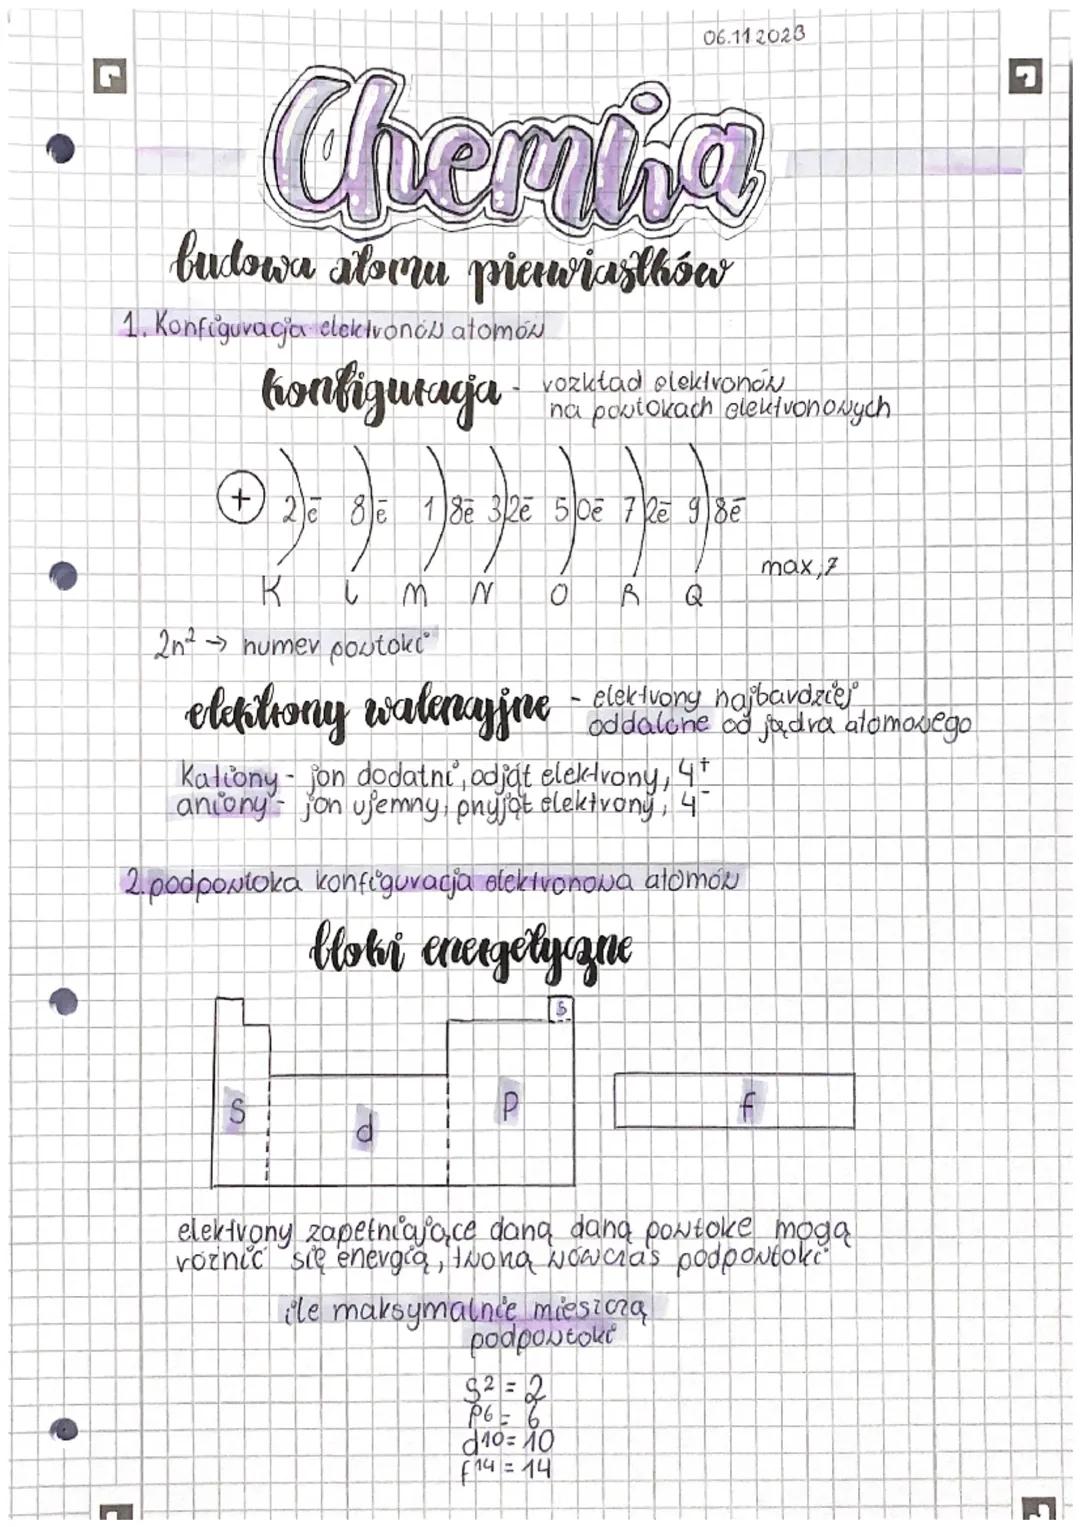 06.11 2023
Chemia
budowa atomu pierwiastków
1. Konfiguracja elektronów atomów
konfiguracja - rozkład elektronów
na powłokach elektronowych
+ 2)ē 8)ē 1)8ē 3)2ē 5)0ē 7)2ē 9)8ē
max, 7
K L M N O P Q
2n² → numer powłoki
elektrony walencyjne - elektrony najbardziej
oddalone od jądra atomowego
Kationy - jon dodatni, odjął elektrony, 4⁺
aniony - jon ujemny, przyjął elektrony, 4⁻
2. podpowłoka konfiguracja elektronowa atomów
bloki energetyczne
s
s d p f
elektrony zapełniające daną daną powłoke mogą
róznić się energią, tworzą wówczas podpowłoki
ile maksymalnie mieszczą
podpowłoki
s² = 2
p⁶ = 6
d¹⁰ = 10
f¹⁴ = 14